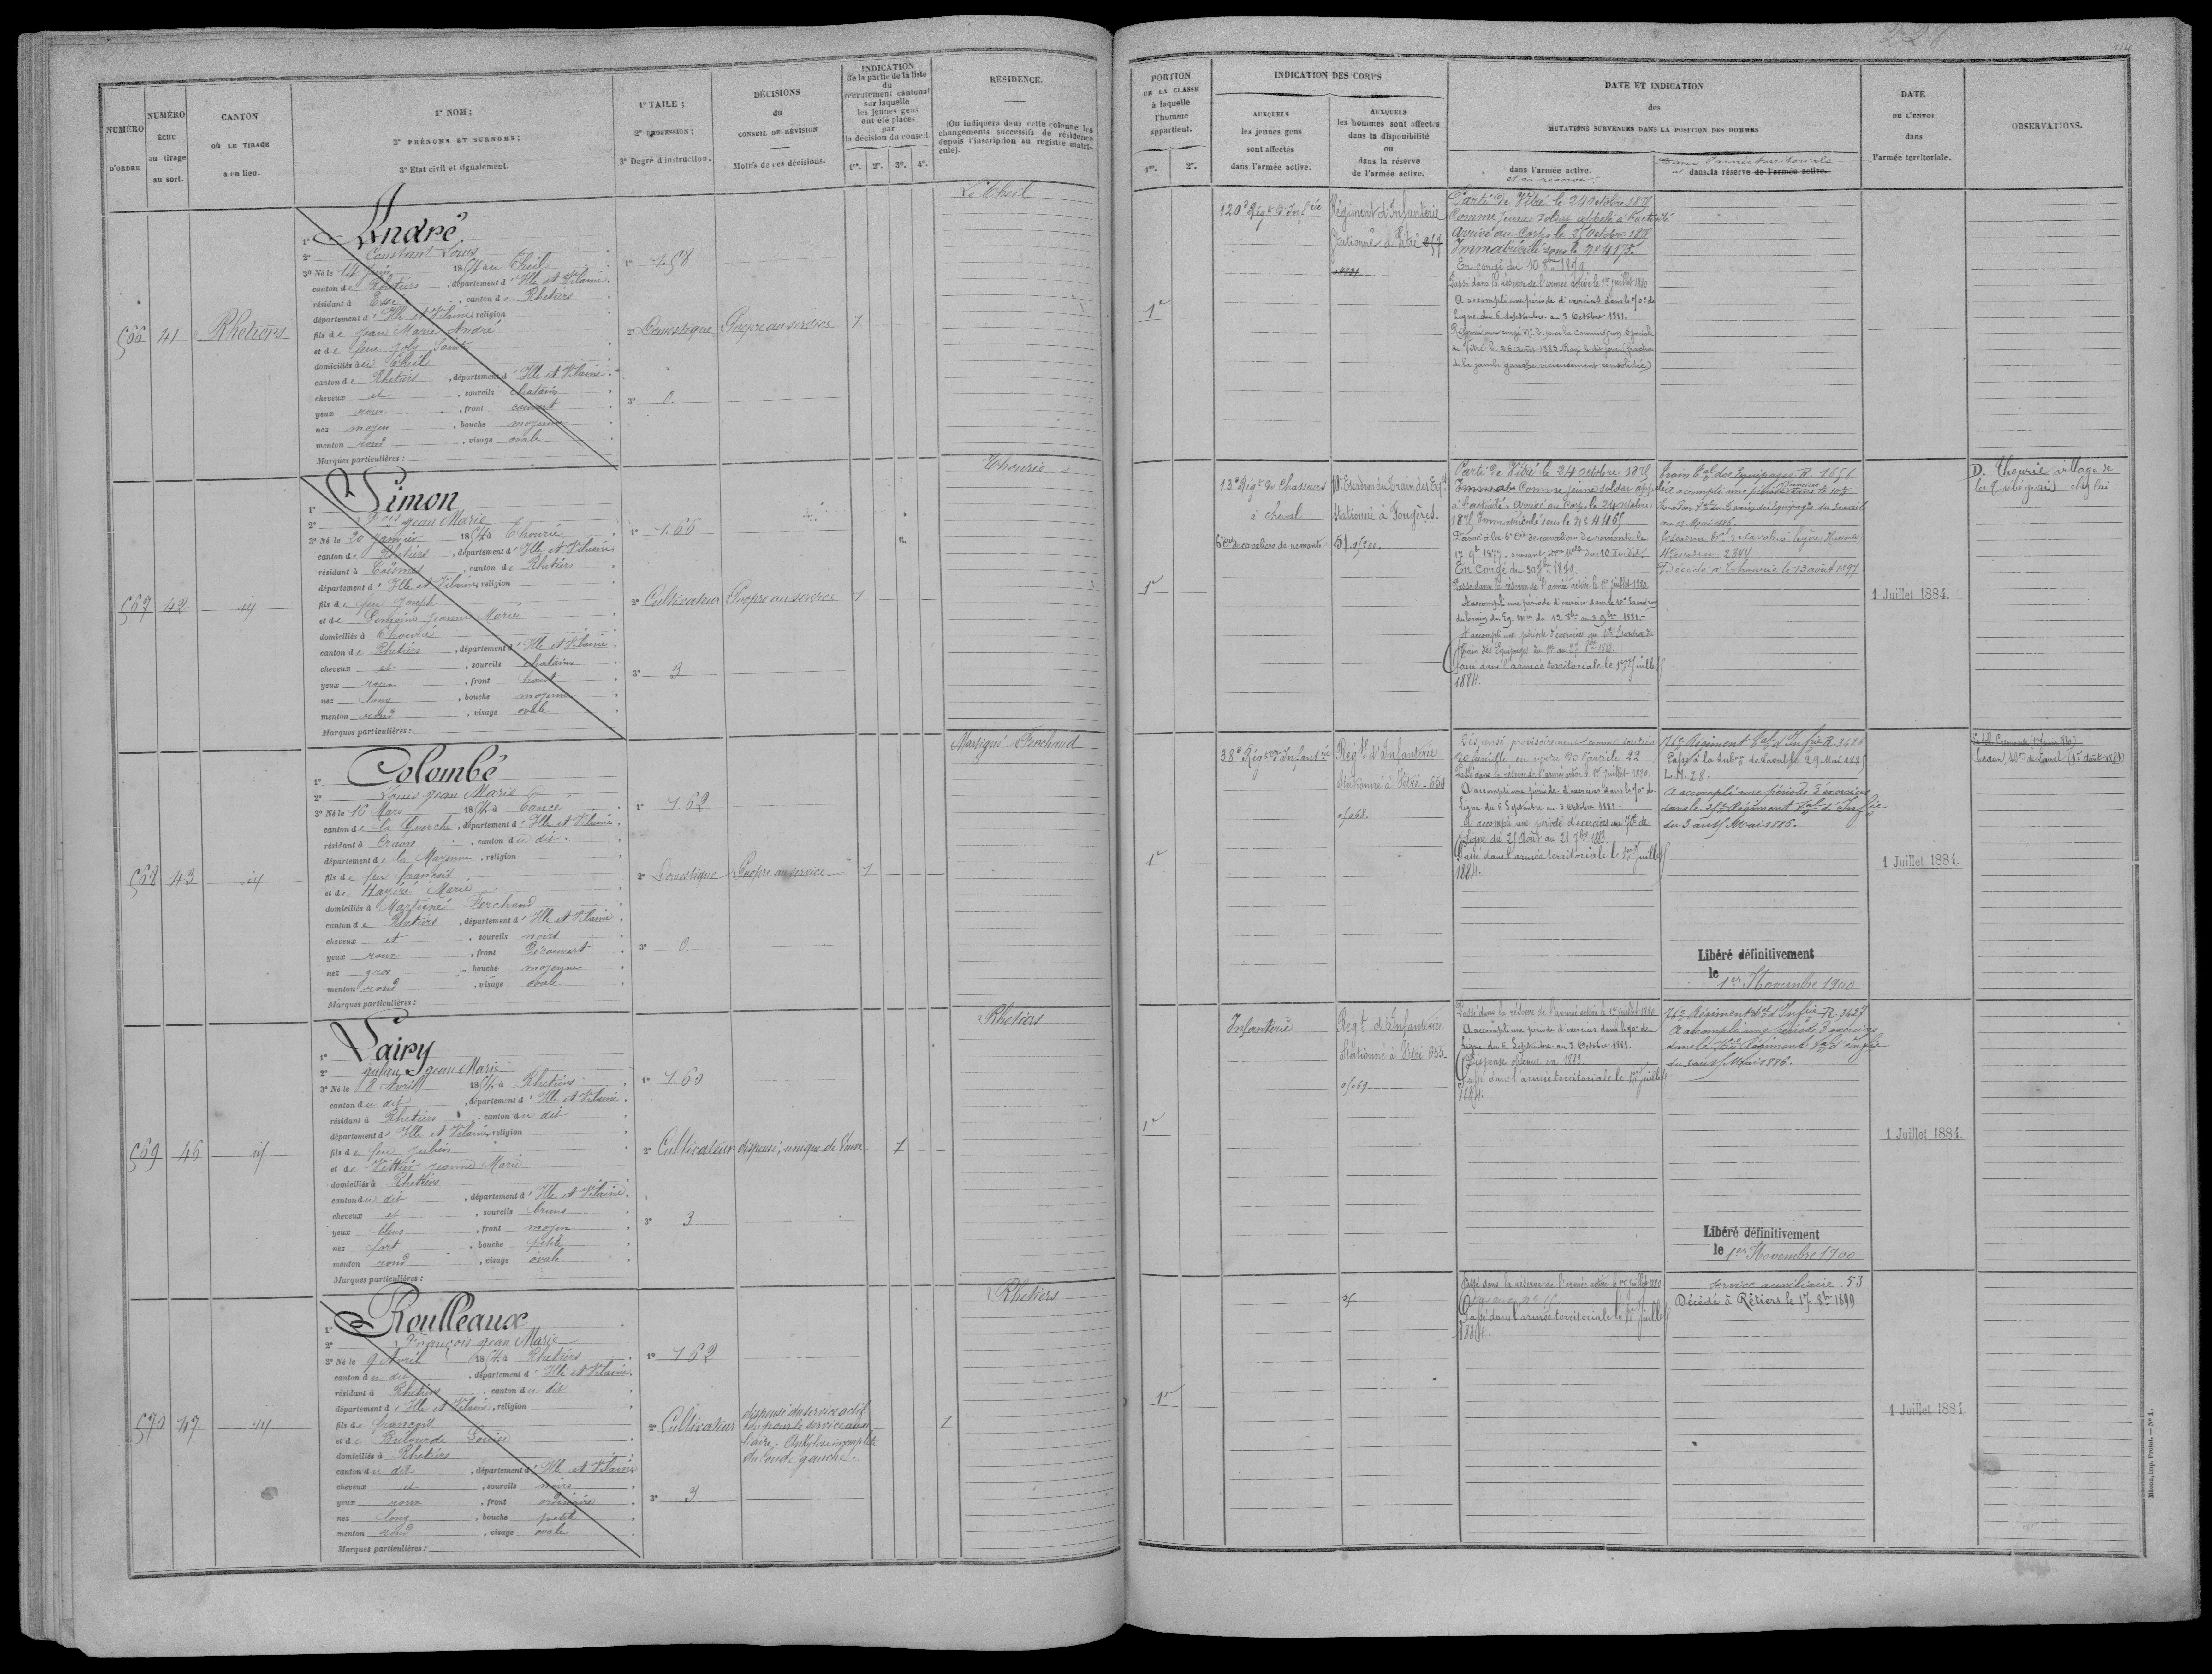 227
NUMÉRO
D'ORDRE
NUMÉRO
ÉCHU
au tirage
au sort.
CANTON
OÙ LE TIRAGE
a eu lieu.
1° NOM;
2° PRÉNOMS ET SURNOMS;
3° Etat civil et signalement.
1° TAILE;
2° PROFESSION;
3° Degré d'instruction.
DÉCISIONS
du
CONSEIL DE RÉVISION
Motifs de ces décisions.
INDICATION
de la partie de la liste
du
recrutement cantonal
sur laquelle
les jeunes gens
ont été placés
par
la décision du conseil
1re. 2e. 3e. 4e.
RÉSIDENCE.
(On indiquera dans cette colonne les
changements successifs de résidence
depuis l'inscription au registre matri-
cule).
566 41 Rhetiers
1° André
2° Constant Louis
3° Né le 14 Juin 1854 au Theil
canton de Rhetiers, département d'Ille et Vilaine.
résidant à Esse, canton de Rhetiers
département d'Ille et Vilaine, religion
fils de Jean Marie André
et de feue Joly Sainte
domiciliés au Theil
canton de Rhetiers, département d'Ille et Vilaine.
cheveux et, sourcils chatains
yeux roux, front couvert
nez moyen, bouche moyenne
menton rond, visage ovale
Marques particulières :
1° 1.58
2° Domestique
3° 0.
Propre au service
1
Le Theil
567 42 id
1° Simon
2° Jean Marie
3° Né le 20 Janvier 1854 à Thourie
canton de Rhetiers, département d'Ille et Vilaine
résidant à Coësmes, canton de Rhetiers
département d'Ille et Vilaine, religion
fils de feu Joseph
et de Jeanne Marie
domiciliés à Thourie
canton de Rhetiers, département d'Ille et Vilaine.
cheveux et, sourcils chatains
yeux roux, front haut
nez long, bouche moyenne
menton rond, visage ovale
Marques particulières :
1° 1.66
2° Cultivateur
3° 3
Propre au service
1
Thourie
568 43 id
1° Colombé
2° Louis Jean Marie
3° Né le 16 Mars 1854 à
canton de la Guerch, département d'Ille et Vilaine.
résidant à Craon, canton du dit.
département de la Mayenne, religion
fils de feu françois
et de Marie
domiciliés à Martigné Ferchaud
canton de Rhetiers, département d'Ille et Vilaine.
cheveux et, sourcils noirs
yeux roux, front découvert
nez gros, bouche moyenne
menton rond, visage ovale
Marques particulières :
1° 1.62
2° Domestique
3° 0.
Propre au service
1
Martigné Ferchaud
569 46 id
1° Lairy
2° Julien Jean Marie
3° Né le 8 Avril 1854 à Rhetiers
canton du dit, département d'Ille et Vilaine
résidant à Rhetiers, canton du dit
département d'Ille et Vilaine, religion
fils de feu Julien
et de Jeanne Marie
domiciliés à Rhetiers
canton du dit, département d'Ille et Vilaine.
cheveux et, sourcils bruns
yeux bleus, front moyen
nez fort, bouche petite
menton rond, visage ovale
Marques particulières :
1° 1.60
2° Cultivateur
3° 3
dispensé, unique de veuve
1
Rhetiers
570 47 id
1° Roulleaux
2° François Jean Marie
3° Né le 9 Avril 1854 à Rhetiers
canton du dit, département d'Ille et Vilaine.
résidant à Rhetiers, canton du dit
département d'Ille et Vilaine, religion
fils de françois
et de Louise
domiciliés à Rhetiers
canton du dit, département d'Ille et Vilaine
cheveux et, sourcils noirs
yeux roux, front ordinaire
nez long, bouche petite
menton rond, visage ovale
Marques particulières :
1° 1.62
2° Cultivateur
3° 3
dispensé du service actif
bon pour le service auxi
liaire. Ankylose incomplète
du coude gauche.
1
Rhetiers
228
114
PORTION
DE LA CLASSE
à laquelle
l'homme
appartient.
1re. 2e.
INDICATION DES CORPS
AUXQUELS
les jeunes gens
sont affectés
dans l'armée active.
AUXQUELS
les hommes sont affectés
dans la disponibilité
ou
dans la réserve
de l'armée active.
DATE ET INDICATION
des
MUTATIONS SURVENUES DANS LA POSITION DES HOMMES
dans l'armée active.
et sa réserve.
Dans l'armée territoriale
et dans la réserve de l'armée active.
DATE
DE L'ENVOI
dans
l'armée territoriale.
OBSERVATIONS.
1re
120e Régt d'Infie
Régiment d'Infanterie
Stationné à Vitré
Parti de Vitré le 24 Octobre 1875
Comme jeune soldat appelé à l'activité
Arrivé au Corps le 25 Octobre 1875
Immatriculé sous le No 4175.
En congé du 10 8bre 1879
Passé dans la réserve de l'armée active le 1er Juillet 1880
A accompli une période d'exercices dans le 70e de
Ligne du 6 Septembre au 3 Octobre 1881.
Réformé par congé No 2 par la Commission spéciale
de Vitré le 26 août 1883. Rayé le dit jour (fracture
de la jambe gauche vicieusement consolidée)
1re
13e Régt de Chasseurs
à cheval
6e Cie de cavaliers de remonte
10e Escadron du Train des Eqs
Stationné à Fougères.
Parti de Vitré le 24 Octobre 1875
Comme jeune soldat appelé
à l'activité. Arrivé au Corps le 24 Octobre
1875 Immatriculé sous le No 4465
Passé à la 6e Cie de cavaliers de remonte le
En congé du 30 1879.
Passé dans la réserve de l'armée active le 1er Juillet 1880.
A accompli une période d'exercices dans le 10e Escadron
du train des Eq. Mres du 12 8bre au 8 9bre 1881.
A accompli une période d'exercices au 10e Escadron du
Train des Equipages
Passé dans l'armée territoriale le 1er Juillet
1884.
Train Tal des Equipages R. 1656
A accompli une période dans le 10e
Décédé à Thourie le 13 août 1897
1 Juillet 1884.
D. Thourie village de
1re
38e Régt d'Infanterie
Régt d'Infanterie
Stationné à Vitré - 659
Dispensé provisoirement comme soutien
de famille en vertu de l'article 22
Passé dans la réserve de l'armée active le 1er Juillet 1880.
A accompli une période d'exercices dans le 70e de
Ligne du 6 Septembre au 3 Octobre 1881.
A accompli une période d'exercices au 70e de
Ligne du 25 Août au 21 7bre 1883.
Passé dans l'armée territoriale le 1er Juillet
1884.
76e Régiment Tal d'Infie R. 3624
Passé à la Subon de Laval le 29 Mai 1885
L.M. 28.
A accompli une période d'exercices
dans le 25e Régiment Tal d'Infie
du 3 au 15 Mai 1886.
Libéré définitivement
le 1er Novembre 1900
1 Juillet 1884.
1re
Infanterie
Régt d'Infanterie
Stationné à Vitré 655.
Passé dans la réserve de l'armée active le 1er juillet 1880
A accompli une période d'exercices dans le 70e de
Ligne du 6 Septembre au 3 Octobre 1881.
Dispense obtenue en 1883
Passé dans l'armée territoriale le 1er Juillet
1884.
76e Régiment Tal d'Infie R. 3627
A accompli une période d'exercices
dans le 76e Régiment Tal d'Infie
du 3 au 15 Mai 1886.
Libéré définitivement
le 1er Novembre 1900
1 Juillet 1884.
1re
Passé dans la réserve de l'armée active le 1er Juillet 1880.
Passé dans l'armée territoriale le 1er Juillet
1884.
Service auxiliaire. 53
Décédé à Rétiers le 17 8bre 1899
1 Juillet 1884
Mâcon, imp. Protat. — No 1.